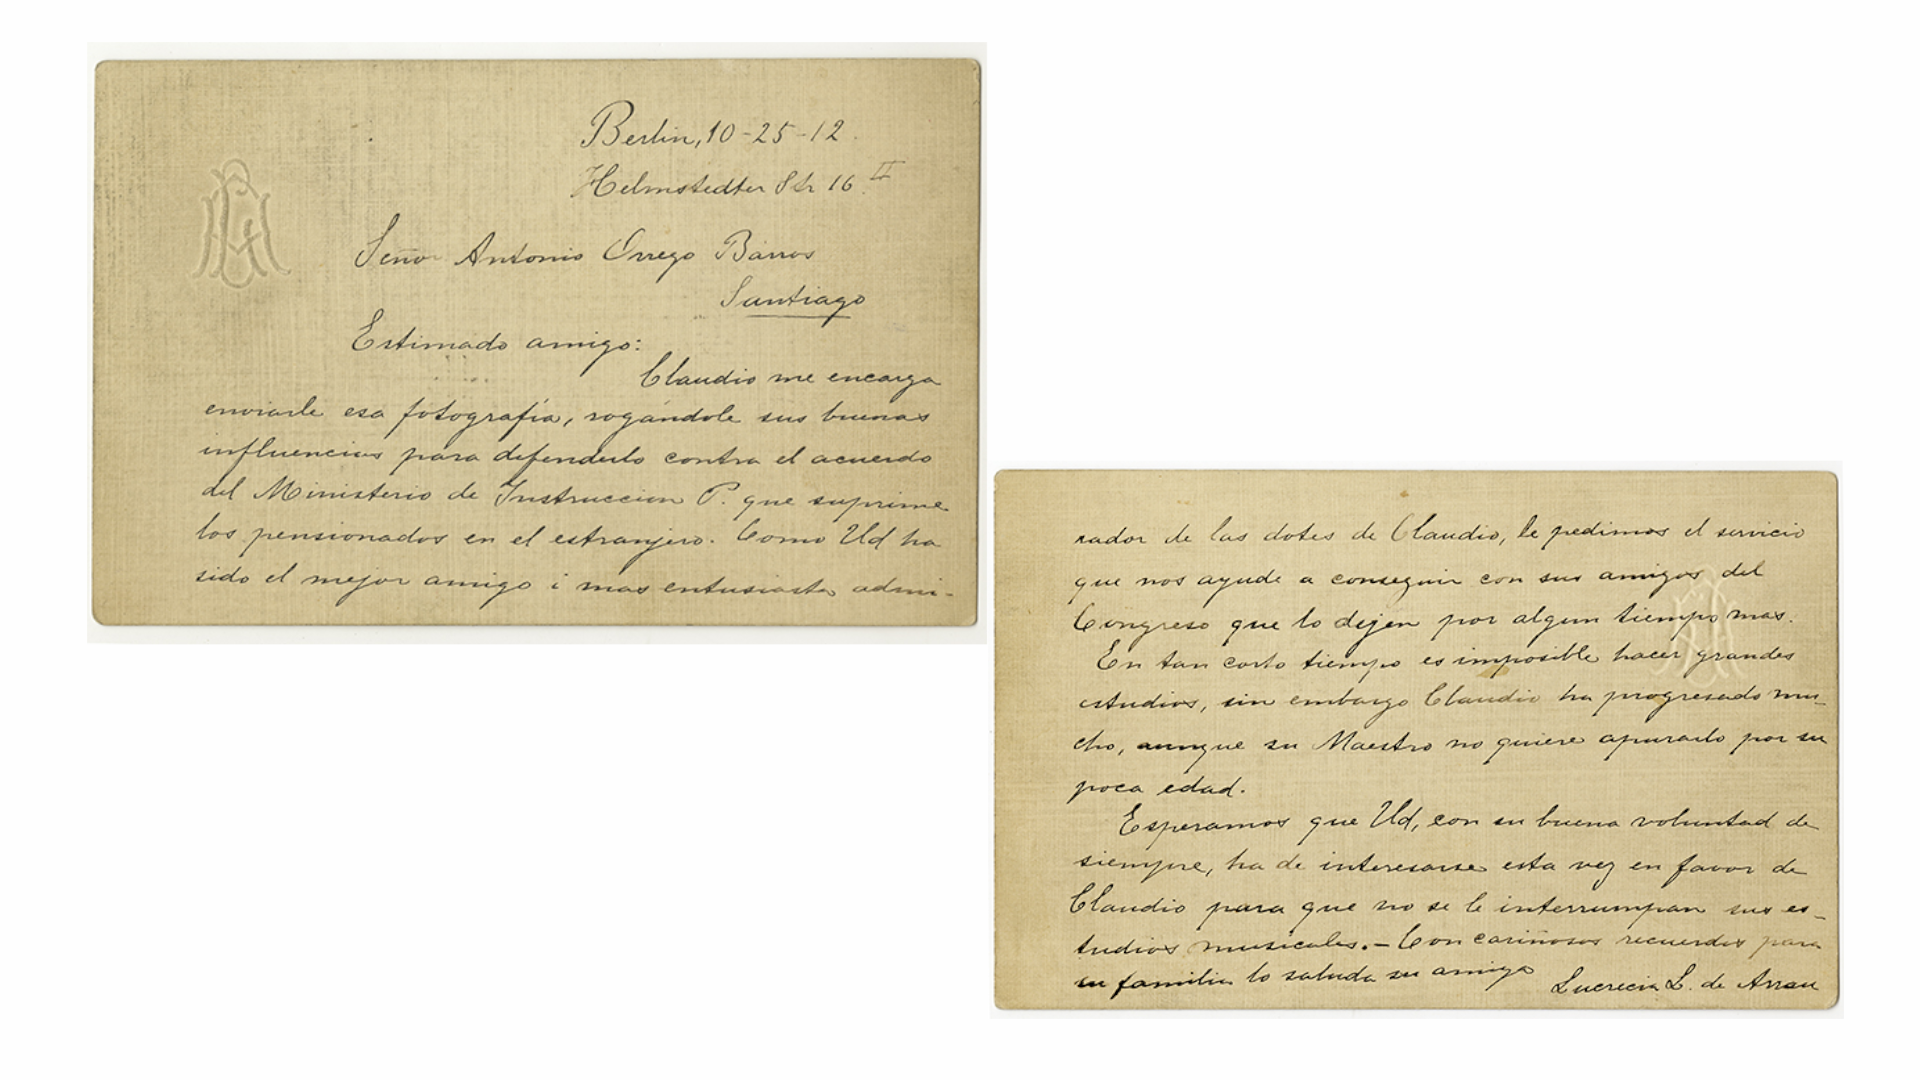 Berlin, 10-25-12.
Helmstedter Str 16 II
Señor Antonio Orrego Barros
Santiago
Estimado amigo:
Claudio me encarga
enviarle esa fotografía, rogándole sus buenas
influencias para defenderlo contra el acuerdo
del Ministerio de Instruccion P. que suprime
los pensionados en el estranjero. Como Ud ha
sido el mejor amigo i mas entusiasta admi-
rador de las dotes de Claudio, le pedimos el servicio
que nos ayude a conseguir con sus amigos del
Congreso que lo dejen por algun tiempo mas.
En tan corto tiempo es imposible hacer grandes
estudios, sin embargo Claudio ha progresado mu-
cho, aunque su Maestro no quiere apurarlo por su
poca edad.
Esperamos que Ud, con su buena voluntad de
siempre, ha de interesarse esta vez en favor de
Claudio para que no se le interrumpan sus es-
tudios musicales. - Con cariñosos recuerdos para
su familia lo saluda su amiga Lucrecia L. de Arrau